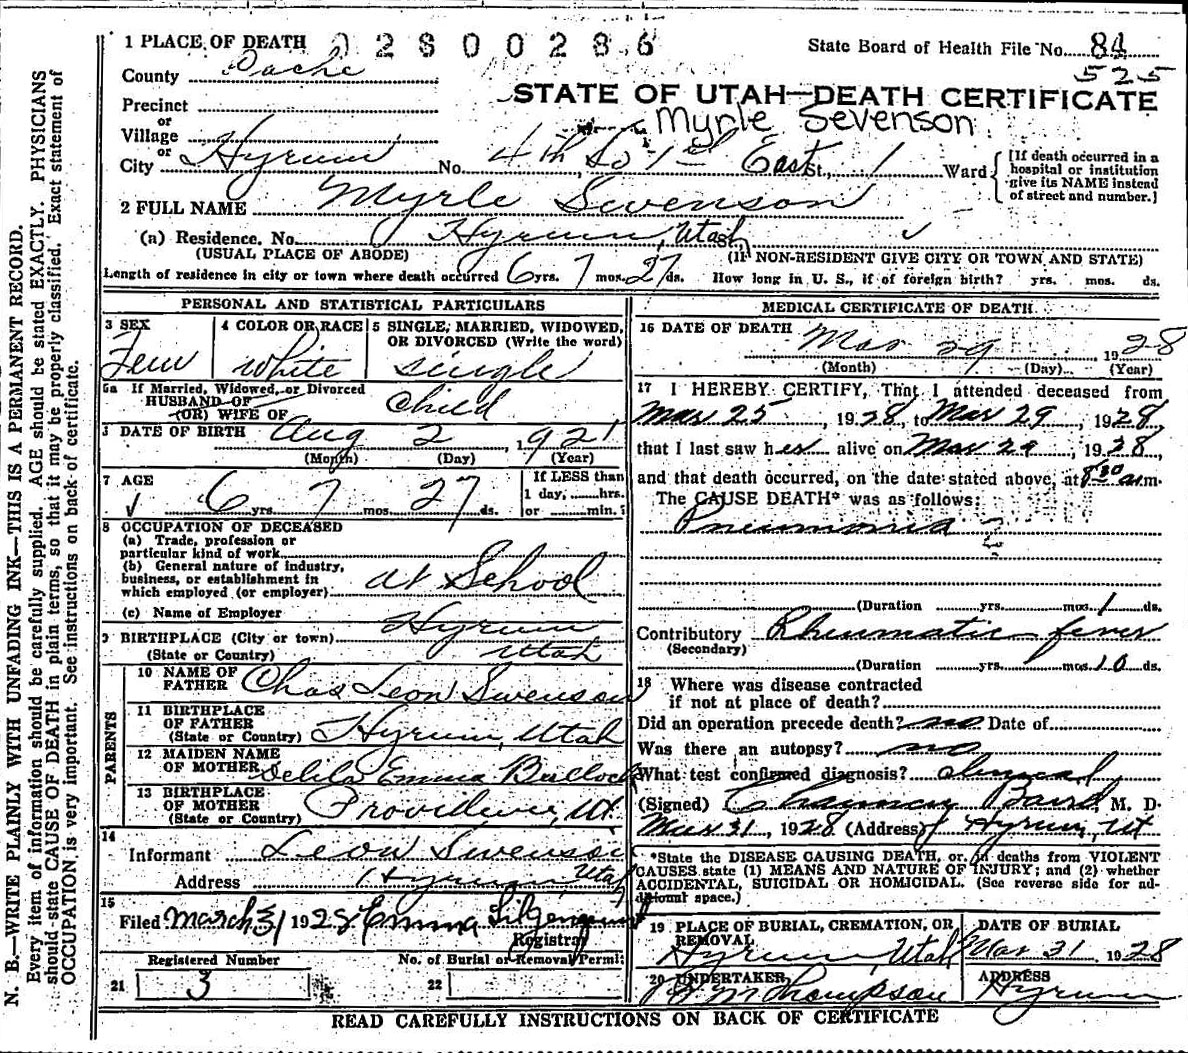 1 PLACE OF DEATH 02800286 State Board of Health File No. 84
County Cache 525
STATE OF UTAH—DEATH CERTIFICATE
Precinct
or
Myrle Sevenson
Village
or
City Hyrum No. 4th So 1st East St., 1 Ward
[If death occurred in a hospital or institution give its NAME instead of street and number.]
2 FULL NAME Myrle Swenson
(a) Residence. No. Hyrum, Utah
(USUAL PLACE OF ABODE) (If NON-RESIDENT GIVE CITY OR TOWN AND STATE)
Length of residence in city or town where death occurred 6 yrs. 7 mos. 27 ds. How long in U. S., if of foreign birth? yrs. mos. ds.
PERSONAL AND STATISTICAL PARTICULARS
3 SEX
Fem
4 COLOR OR RACE
white
5 SINGLE, MARRIED, WIDOWED, OR DIVORCED (Write the word)
single
5a If Married, Widowed, or Divorced
HUSBAND OF
(OR) WIFE OF
Child
DATE OF BIRTH Aug 2, 1921
(Month) (Day) (Year)
7 AGE
6 yrs. 7 mos. 27 ds.
If LESS than
1 day, hrs.
or min.?
8 OCCUPATION OF DECEASED
(a) Trade, profession or
particular kind of work
(b) General nature of industry,
business, or establishment in
which employed (or employer) at School
(c) Name of Employer
9 BIRTHPLACE (City or town) Hyrum
(State or Country) Utah
PARENTS
10 NAME OF
FATHER Chas Leon Swenson
11 BIRTHPLACE
OF FATHER
(State or Country) Hyrum, Utah
12 MAIDEN NAME
OF MOTHER Delila Emma Bullock
13 BIRTHPLACE
OF MOTHER
(State or Country) Providence, Ut.
14
Informant Leon Swenson
Address Hyrum, Utah
15
Filed March 31 1928 Emma Liljenquist
Registrar
Registered Number No. of Burial or Removal Permit
21 3 22
MEDICAL CERTIFICATE OF DEATH
16 DATE OF DEATH Mar 29 1928
(Month) (Day) (Year)
17 I HEREBY CERTIFY, That I attended deceased from
Mar 25, 1928, to Mar 29, 1928,
that I last saw her alive on Mar 29, 1928,
and that death occurred, on the date stated above, at 8 30 a.m.
The CAUSE DEATH* was as follows:
Pneumonia
(Duration yrs. mos. 1 ds.
Contributory Rheumatic fever
(Secondary)
(Duration yrs. mos. 10 ds.
18 Where was disease contracted
if not at place of death?
Did an operation precede death? no Date of
Was there an autopsy? no
What test confirmed diagnosis? clinical
(Signed) Chauncey Baird M. D.
Mar 31, 1928 (Address) Hyrum, Ut
*State the DISEASE CAUSING DEATH, or, in deaths from VIOLENT
CAUSES state (1) MEANS AND NATURE OF INJURY; and (2) whether
ACCIDENTAL, SUICIDAL OR HOMICIDAL. (See reverse side for ad-
ditional space.)
19 PLACE OF BURIAL, CREMATION, OR
REMOVAL
Hyrum, Utah
DATE OF BURIAL
Mar 31 1928
20 UNDERTAKER
Thompson
ADDRESS
Hyrum
READ CAREFULLY INSTRUCTIONS ON BACK OF CERTIFICATE
N. B.—WRITE PLAINLY WITH UNFADING INK—THIS IS A PERMANENT RECORD.
Every item of information should be carefully supplied. AGE should be stated EXACTLY. PHYSICIANS
should state CAUSE OF DEATH in plain terms, so that it may be properly classified. Exact statement of
OCCUPATION is very important. See instructions on back of certificate.